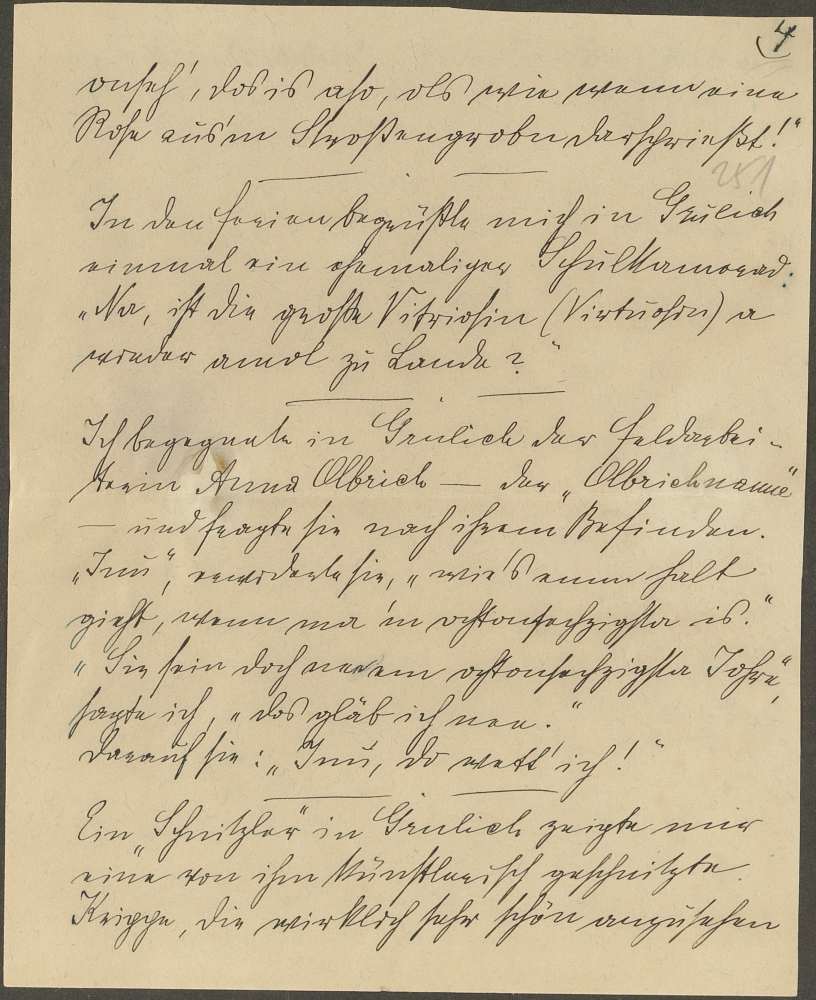 4
onseh', dos is aso, ols wie wenn eine
Rose aus'm Stroßengrobn darschrießt!"
251
In den Ferien begrüßte mich in Grulich
einmal ein ehemaliger Schulkamerad:
"Na, ist die große Vitriosin (Virtuosin) a
wieder amol zu Lande?"
Ich begegnete in Grulich der Feldarbei-
terin Anna Olbrich — der "Olbrichnanne"
— und fragte sie nach ihrem Befinden.
"Inu", erwiderte sie, "wie's emm halt
gieht, wenn ma 'm ochtonsechzigsta is."
"Sie sein doch ne em ochtonsechzigsta Johre",
sagte ich, "dos gläb ich nee."
Darauf sie: "Inu, do wett' ich!"
Ein "Schnitzler" in Grulich zeigte mir
eine von ihm künstlerisch geschnitzte
Krippe, die wirklich sehr schön anzusehen